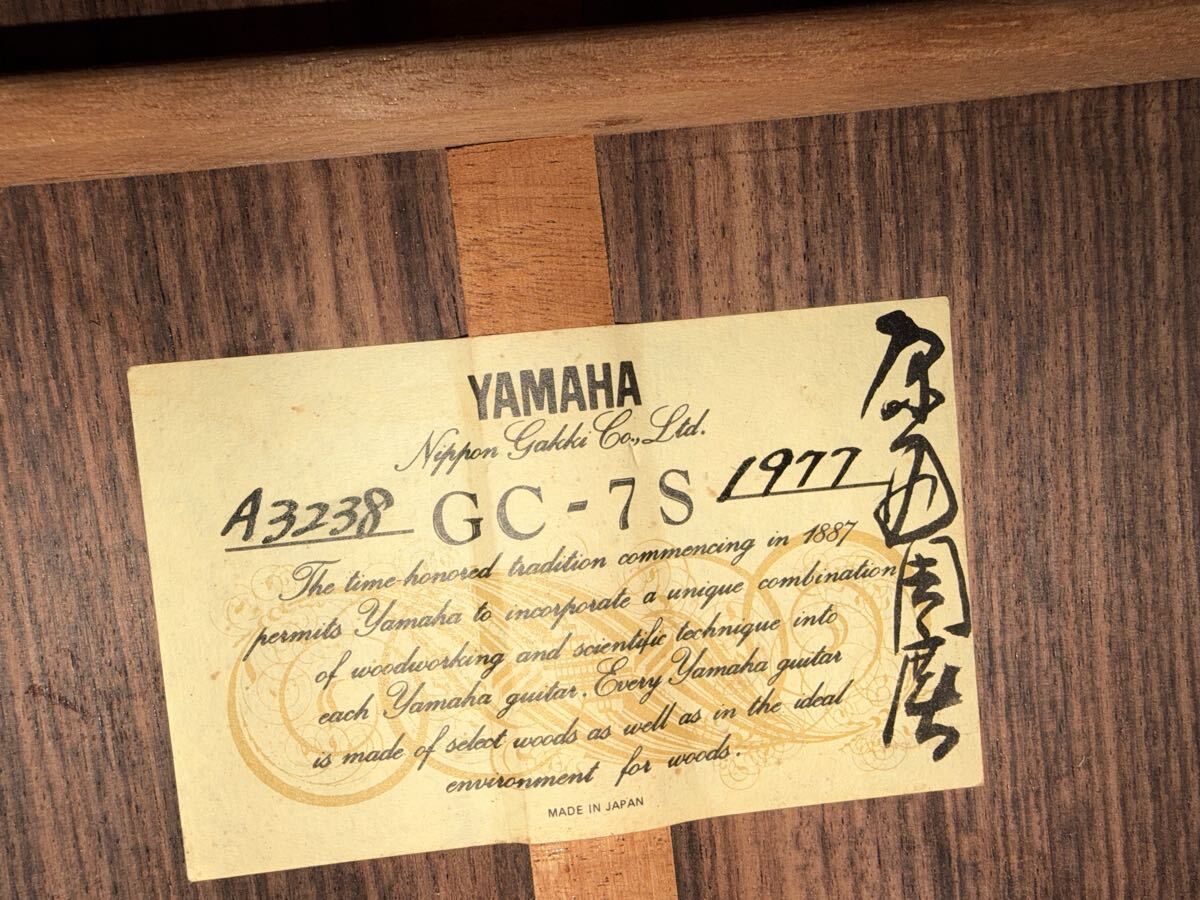 YAMAHA
Nippon Gakki Co., Ltd.
A3238 GC-7S 1977
The time-honored tradition commencing in 1887
permits Yamaha to incorporate a unique combination
of woodworking and scientific technique into
each Yamaha guitar. Every Yamaha guitar
is made of select woods as well as in the ideal
environment for woods.
MADE IN JAPAN